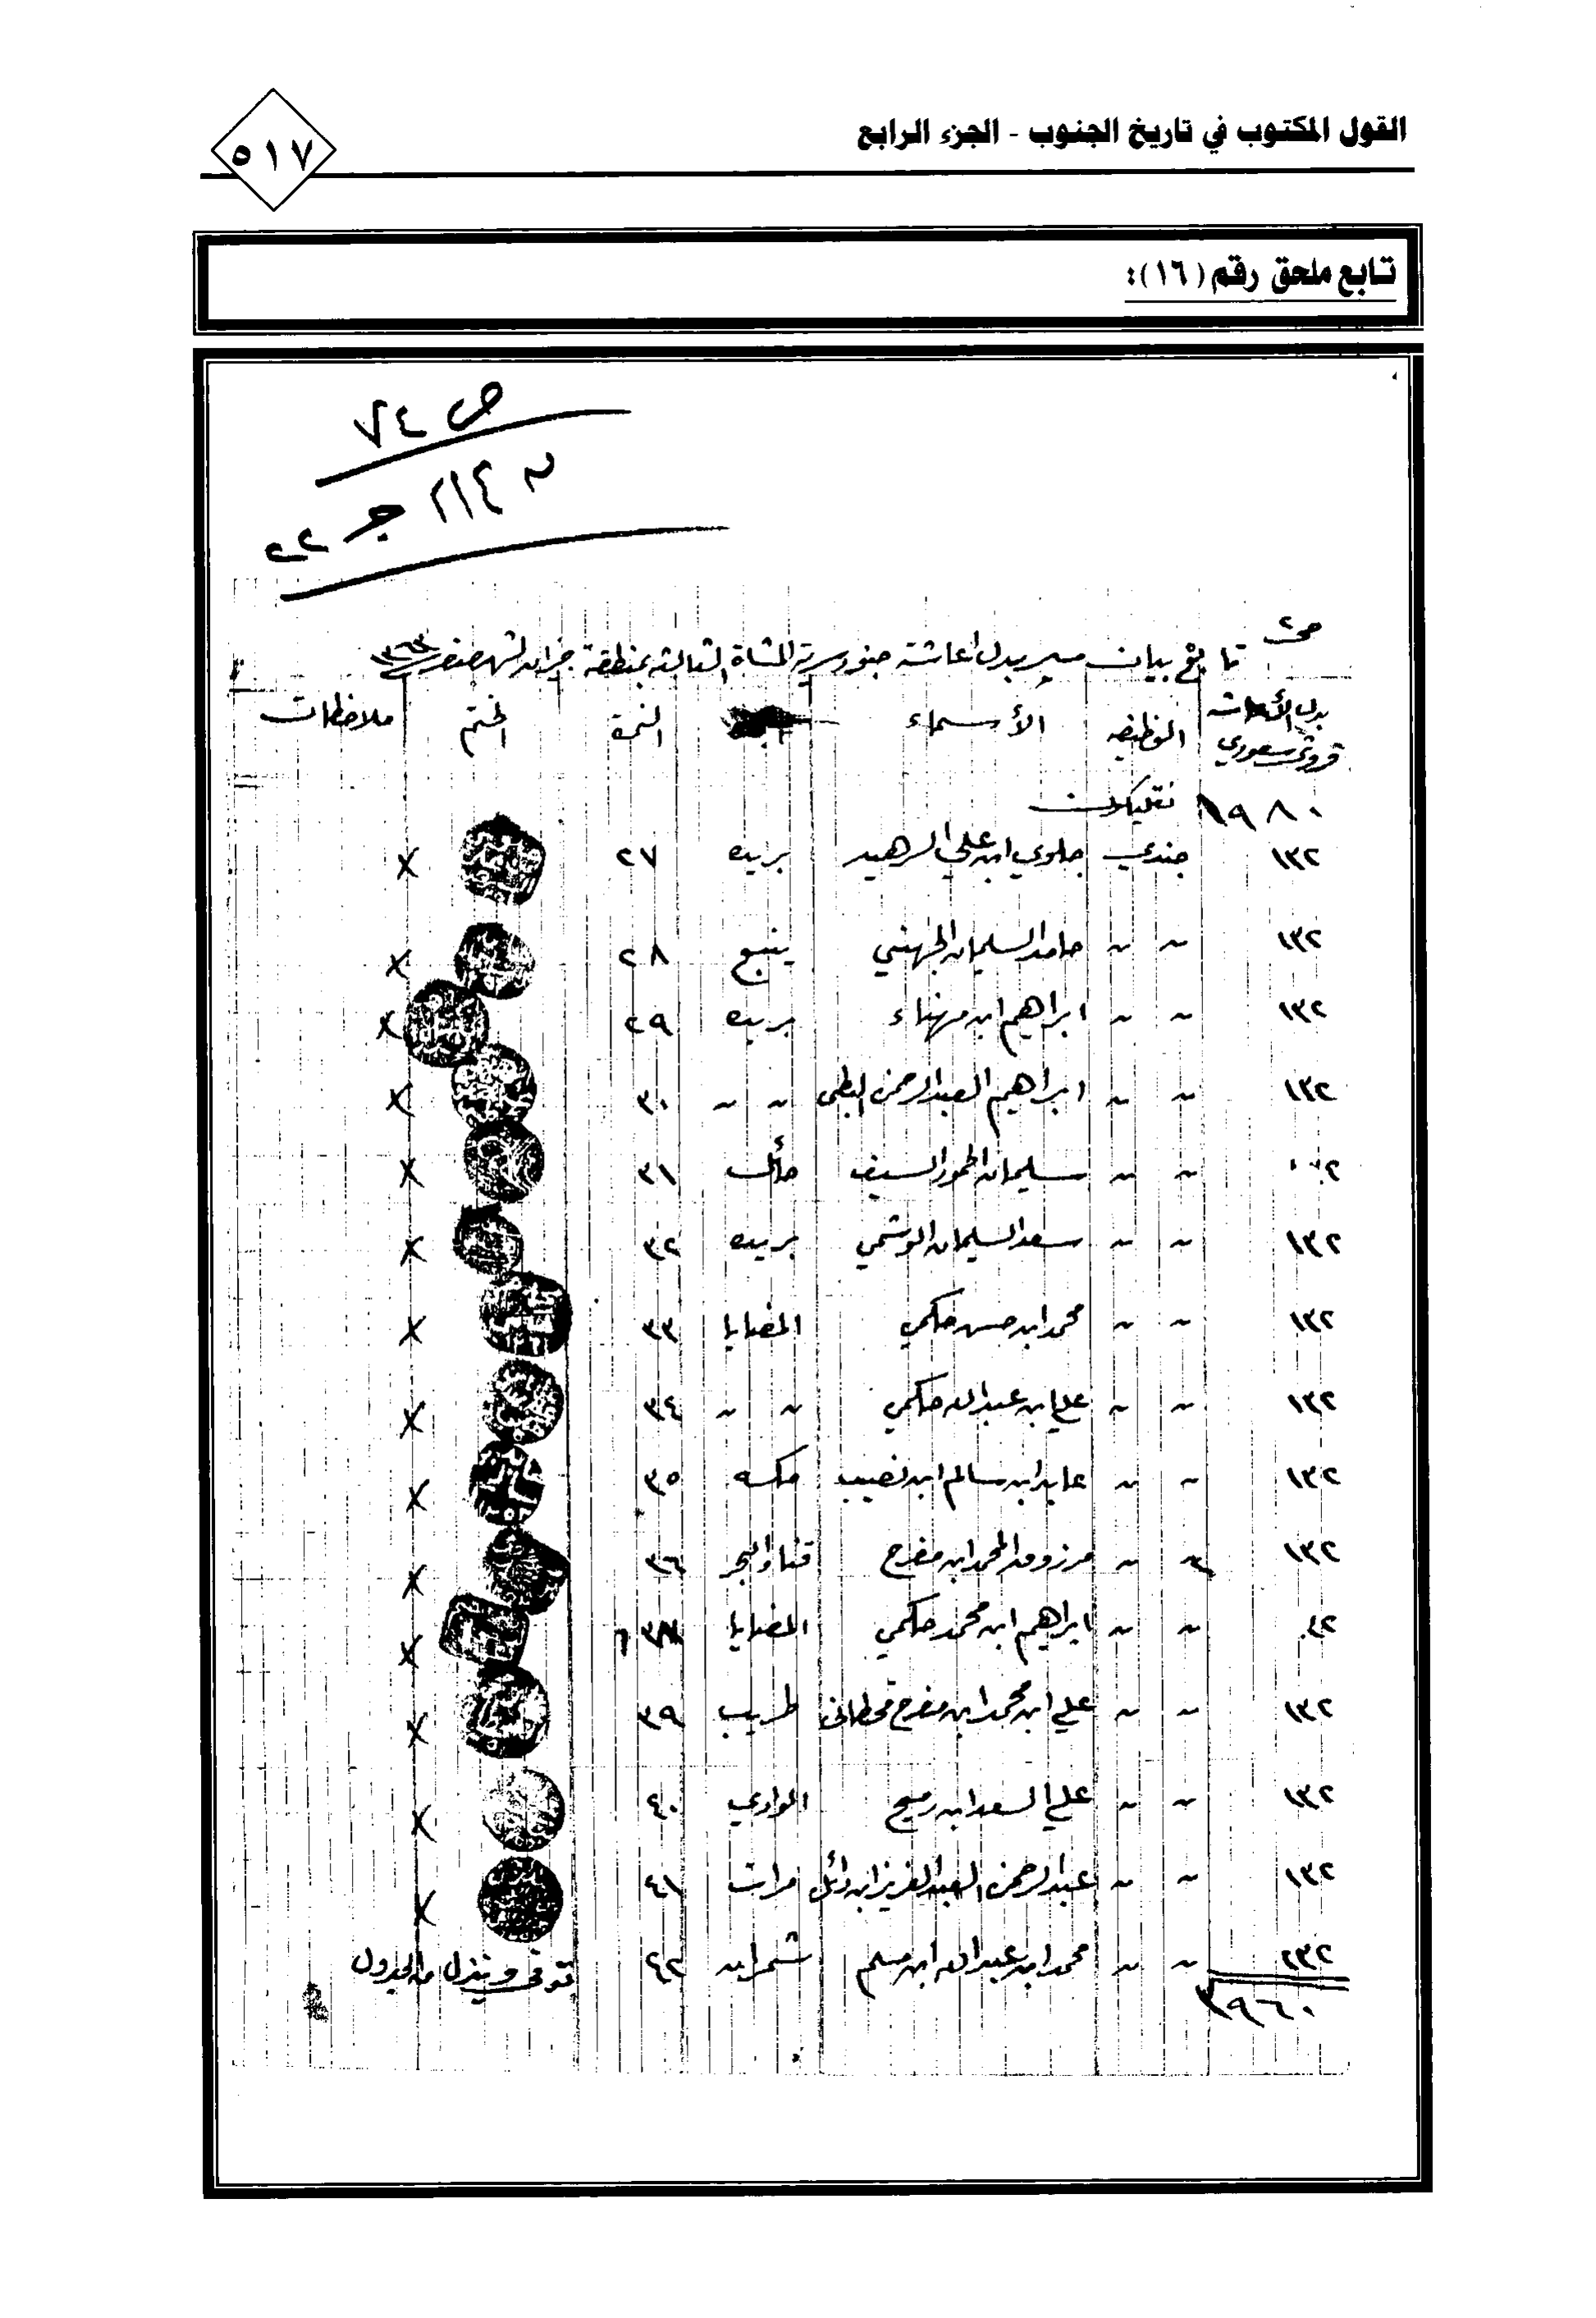 القول المكتوب في تاريخ الجنوب - الجزء الرابع
٥١٧
تابع ملحق رقم (١٦):
ص ٧٤
٢١٤ جـ ٢٢
ص ٢
تابع بيان بدل اعاشة جنود سرية المشاة الثالثة بمنطقة جيزان لشهر صفر
بدل الأعاشة قروش سعودي الوظيفه الأسماء النمرة الختم ملاحظات
١٩٨٠
١٣٢ جندي جلوي ابن علي الرهيد بريده ٢٧ ×
١٣٢ ~ ~ حامد السليمان الجهني ينبع ٢٨ ×
١٣٢ ~ ~ ابراهيم ابن مهناء بريده ٢٩ ×
١٣٢ ~ ~ ابراهيم العبدالرحمن البطي ~ ~ ٣٠ ×
~ ~ سليمان الحمود السيف حائل ٣١ ×
١٣٢ ~ ~ سعد السليمان الوشمي بريده ٣٢ ×
١٣٢ ~ ~ محمد ابن حسن حكمي المضايا ٣٣ ×
١٣٢ ~ ~ علي ابن عبدالله حكمي ~ ~ ٣٤ ×
١٣٢ ~ ~ عابد ابن سالم ابن نصيب مكه ٣٥ ×
١٣٢ ~ ~ مرزوق المحمد ابن مفرح قنا والبحر ٣٦ ×
~ ~ ابراهيم ابن محمد حكمي المضايا ×
١٣٢ ~ ~ علي ابن محمد ابن مفرح قحطاني طريب ٣٩ ×
١٣٢ ~ ~ علي السعد ابن رميح الوادي ٤٠ ×
١٣٢ ~ ~ عبدالرحمن العبدالعزيز ابن دائل مرات ٤١ ×
١٣٢ ~ ~ محمد ابن عبدالله ابن مسلم شمران ٤٢ توفى وينزل من الجدول
٣٩٦٠